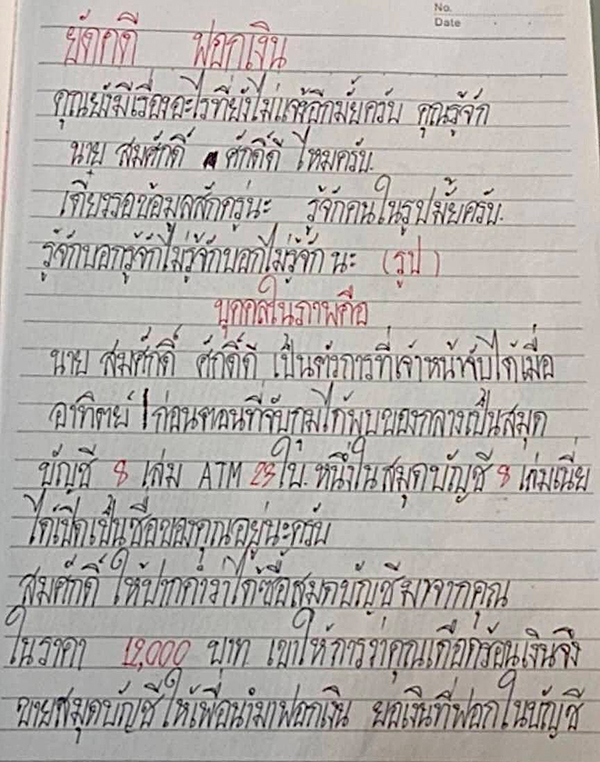 No.
Date
ยัดคดี ฟอกเงิน
คุณยังมีเรื่องอะไรที่ยังไม่แจ้งอีกมั้ยครับ คุณรู้จัก
นาย สมศักดิ์ ศักดิ์ดี ไหมครับ.
เดี๋ยวรอข้อมูลสักครู่นะ รู้จักคนในรูปมั้ยครับ.
รู้จักบอกรู้จักไม่รู้จักบอกไม่รู้จัก นะ (รูป)
บุคคลในภาพคือ
นาย สมศักดิ์ ศักดิ์ดี เป็นตัวการที่เจ้าหน้าจับได้เมื่อ
อาทิตย์ 1 ก่อนตอนที่จับกุมได้พบของกลางเป็นสมุด
บัญชี 8 เล่ม ATM 23 ใบ. หนึ่งในสมุดบัญชี 8 เล่มเนี่ย
ได้เปิดเป็นชื่อของคุณอยู่นะครับ
สมศักดิ์ ให้ปากคำว่าได้ซื้อสมุดบัญชีมาจากคุณ
ในราคา 12,000 บาท เขาให้การว่าคุณเดือดร้อนเงินจึง
ขายสมุดบัญชีให้เพื่อนำมาฟอกเงิน ยอเงินที่ฟอกในบัญชี